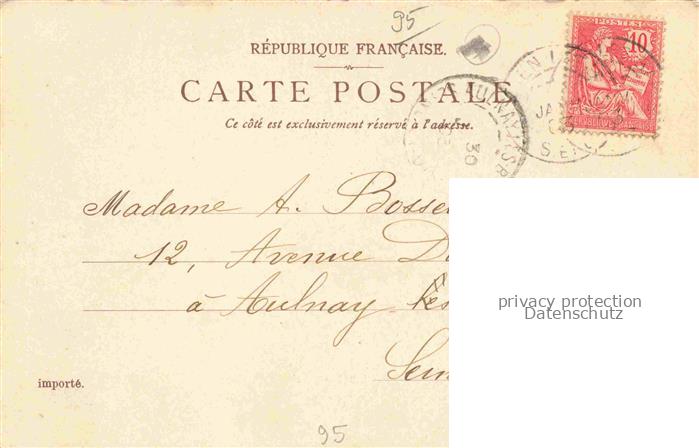 95
RÉPUBLIQUE FRANÇAISE.
CARTE POSTALE
Ce côté est exclusivement réservé à l'adresse.
POSTES
10
RÉPUBLIQUE FRANÇAISE
Madame A. Bosse
12, Avenue D
à Aulnay les
Sein
privacy protection
Datenschutz
importé.
95